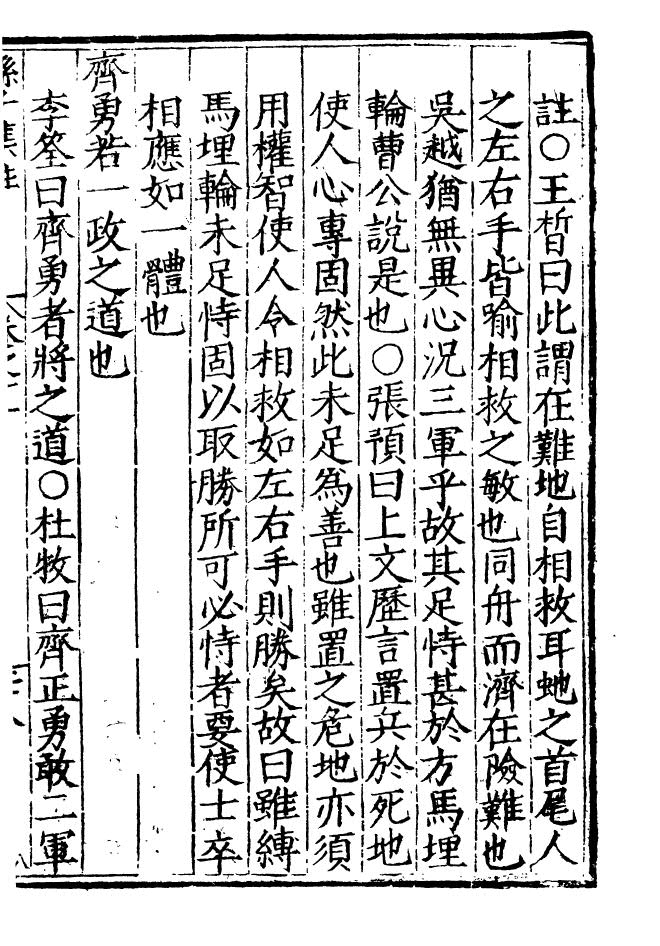 註○王晳曰此謂在難地自相救耳虵之首尾人
之左右手皆喻相救之敏也同舟而濟在險難也
吳越猶無異心況三軍乎故其足恃甚於方馬埋
輪曹公說是也○張預曰上文歷言置兵於死地
使人心專固然此未足為善也雖置之危地亦須
用權智使人令相救如左右手則勝矣故曰雖縛
馬埋輪未足恃固以取勝所可必恃者要使士卒
相應如一體也
齊勇若一政之道也
李筌曰齊勇者將之道○杜牧曰齊正勇敢三軍